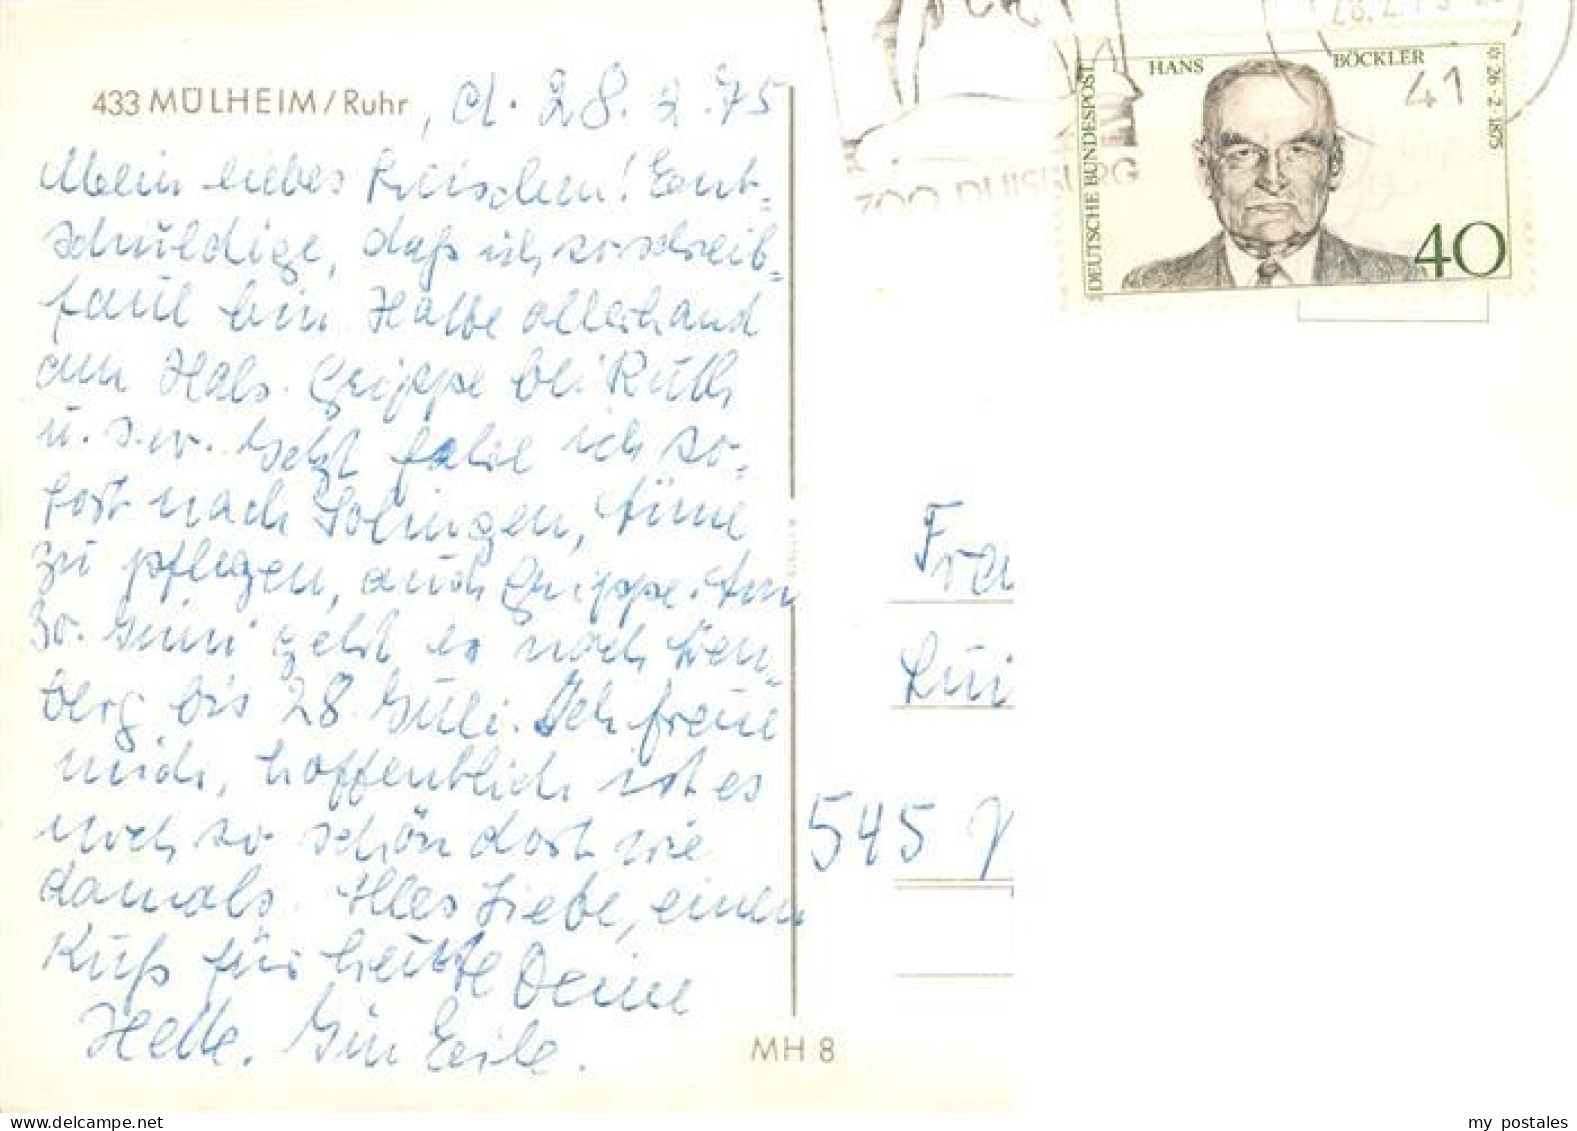 433 MÜLHEIM/Ruhr, d. 28.2.75
Mein liebes Entt-
schuldige, daß ich so schreib-
faul bin. Hatte allerhand
am Hals. Grippe bei Ruth
u.s.w. Jetzt fahre ich so-
fort nach Solingen,
zu pflegen, auch Grippe. Am
30. Juni geht es nach
berg bis 28. Juli. Ich freue
mich, hoffentlich ist es
noch so schön dort wie
damals. Alles Liebe, einen
Kuß für heute Deine
Helle. In Eile.
MH 8
ZOO DUISBURG
28.2.75
DEUTSCHE BUNDESPOST
HANS BÖCKLER
✩ 26·2·1875
41
40
Fra
Lui
545 N
my postales